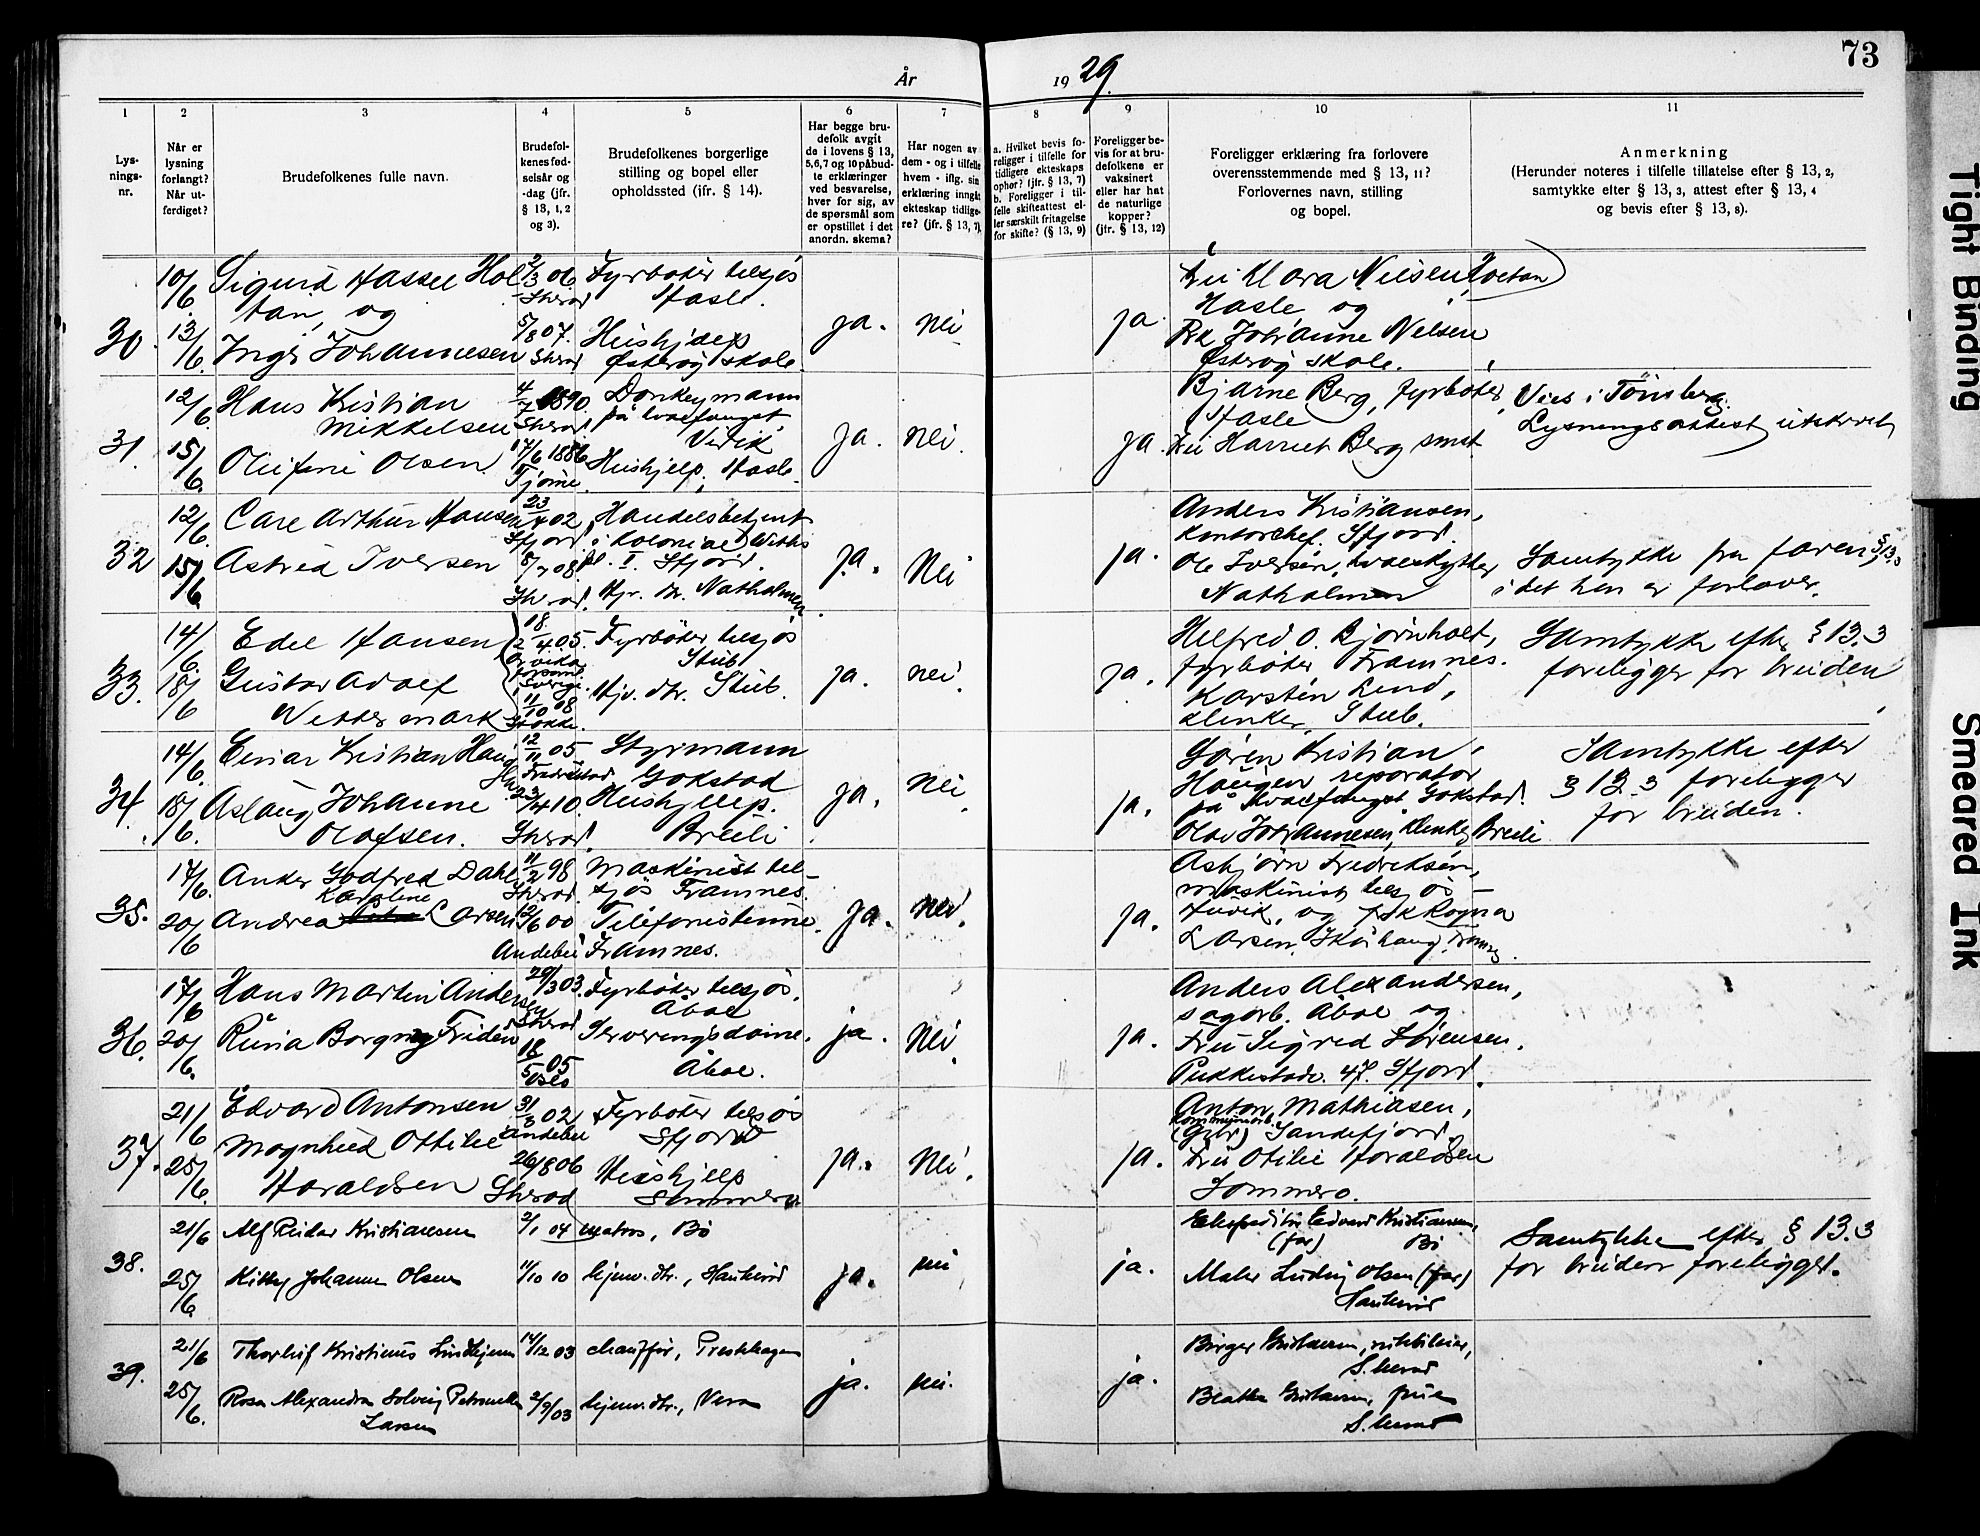 73
År 1929.
1 2 3 4 5 6 7 8 9 10 11
Lys-
nings-
nr.
Når er
lysning
forlangt?
Når ut-
ferdiget?
Brudefolkenes fulle navn.
Brudefol-
kenes fød-
selsår og
-dag (jfr.
§ 13, 1, 2
og 3).
Brudefolkenes borgerlige
stilling og bopel eller
opholdssted (jfr. § 14).
Har begge bru-
defolk avgit
de i lovens § 13,
5, 6, 7 og 10 påbud-
te erklæringer
ved besvarelse,
hver for sig, av
de spørsmål som
er opstillet i det
anordn. skema?
Har nogen av
dem - og i tilfelle
hvem - iflg. sin
erklæring inngåt
ekteskap tidlige-
re? (jfr. § 13, 7)
a. Hvilket bevis fo-
religger i tilfelle for
tidligere ekteskaps
ophør? (jfr. § 13, 7)
b. Foreligger i til-
felle skifteattest el-
ler særskilt fritagelse
for skifte? (§ 13, 9)
Foreligger be-
vis for at bru-
defolkene er
vaksinert
eller har hat
de naturlige
kopper?
(jfr. § 13, 12)
Foreligger erklæring fra forlovere
overensstemmende med § 13, 11?
Forlovernes navn, stilling
og bopel.
Anmerkning
(Herunder noteres i tilfelle tillatelse efter § 13, 2,
samtykke efter § 13, 3, attest efter § 13, 4
og bevis efter § 13, 8).
30.
10/6.
13/6.
Sigurd Hassel Hol-
tan, og
Inga Johannesen
2/3 06
Sherad
5/8 07.
Sherad
Fyrbøter tilsjøs
Hasle.
Hushjelp
Østerøy skole.
ja.
nei
ja.
Fru Klara Nilsen, Holtan
Hasle og
Frk Johanne Nilsen
Østerøy skole.
31.
12/6.
15/6.
Hans Kristian
Mikkelsen
Olufine Olsen
4/7 1890.
Sherad.
17/6 1886
Tjøme.
Donkeymann
på hvalfangst
Vidik
Hushjelp, Hasle.
ja.
nei.
ja.
Bjarne Berg, fyrbøter,
Hasle
Fru Harriet Berg smst
Vies i Tønsberg.
Lysningsattest utskrevet
32
12/6.
15/6.
Carl Arthur Hansen
Astrid Iversen
23/4 02
Sfjord.
8/7 08.
Sherad.
Handelsbetjent
i Kolonial
pl. I. Sfjord.
Hjv. dtr. Natholmen.
ja.
Nei
ja.
Anders Kristiansen,
Kontorchef. Sfjord.
Ole Iversen, hvalskytter
Natholmen
Samtykke fra faren § 13.3
i det han er forlover.
33.
14/6.
18/6
Edel Hansen
Gustav Adolf
Wettermark
18.
2/4. 05.
Arvika
Sverige.
11/10 08
Stokke.
Fyrbøter tilsjøs
Stub
Hjv. dtr. Stub.
ja.
nei.
ja.
Hilfred O. Bjørnholt,
fyrbøter Framnes.
Karsten Lund,
klinker, Stub.
Samtykke efter § 13.3
foreligger for bruden
34.
14/6.
18/6.
Einar Kristian Haugen
Aslaug Johanne
Olafsen.
12/11 05
Fredrikstad
23/4 10.
Sherad.
Styrmann
Gokstad
Hushjelp.
Breili
ja.
nei.
ja.
Søren Kristian
Haugen reparatør
på hvalfangst. Gokstad.
Olav Johannesen, klinker, Breili
Samtykke efter
§ 13.3 foreligger
for bruden.
35.
17/6.
20/6
Anker Godfred Dahl
Karoline
Andrea Larsen
11/2 98
Sherad.
12/6 00
Andebu
Maskinist til-
sjøs Framnes.
Telefonistinne.
Framnes.
ja.
nei.
ja.
Asbjørn Fredriksen,
maskinist tilsjøs -
Huvik, og frk Ragna
Larsen, Skiringssal, Framnes.
36.
17/6
20/6.
Hans Martin Andersen
Runa Borgny Fridén
29/3 03.
Sherad
18/5 05
Oslo
Fyrbøter tilsjøs.
Åbol
Serveringsdame.
Åbol.
ja.
Nei.
ja.
Anders Alexandersen,
sagarb. Åbol og
Fru Sigrid Sørensen.
Pukkestadv. 47. Sfjord.
37.
21/6
25/6.
Edvard Antonsen
Magnhild Ottilie
Haraldsen
31/3 02
Andebu
26/8 06
Sherad
Fyrbøter tilsjøs
Sfjord
Hushjelp
Sommero
ja.
Nei.
ja.
Anton Mathiasen,
Kommunearb.
Sandefjord.
Fru Otilie Haraldsen
Sommero.
38.
21/6
25/6
Alf Reidar Kristiansen
Kitty Johanne Olsen
2/1 04
11/10 10
matros, Bö
hjemv. dtr., Haukerød
ja.
nei
ja.
Ekspeditör Edvard Kristiansen,
(far) Bö
Maler Ludvig Olsen (far)
Haukerød
Samtykke efter § 13.3
for bruden foreligger.
39.
21/6
25/6.
Thorleif Kristinus Lindhjem
Rosa Alexandra Solveig Petronelle
Larsen
14/12 03
2/9/03
chauffør, Prestehagen
hjemv. dtr., Vera
ja.
nei.
ja.
Birger Gustavsen,
S.herad
Beathe Gustavsen, frue
S.herad
Tight Binding
Smeared Ink